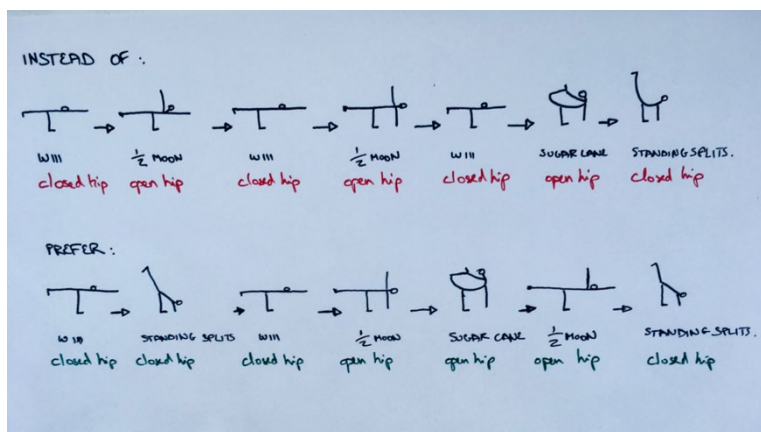 INSTEAD OF :
WIII ½ MOON WIII ½ MOON WIII SUGAR CANE STANDING SPLITS.
closed hip open hip closed hip open hip closed hip open hip closed hip
PREFER :
WIII STANDING SPLITS WIII ½ MOON SUGAR CANE ½ MOON STANDING SPLITS.
closed hip closed hip closed hip open hip open hip open hip closed hip